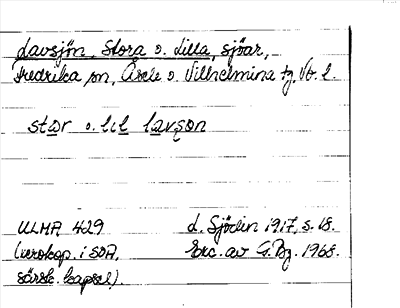 Lavsjön, Stora o. Lilla, sjöar,
Fredrika sn, Åsele o. Vilhelmina tg, Vb. l.
stor o. lil lavşon
ULMA 429 d. Sjödin 1917, s. 18.
(verokap. i SOA, Exc. av G. Bg. 1968.
särsk. kapsel).